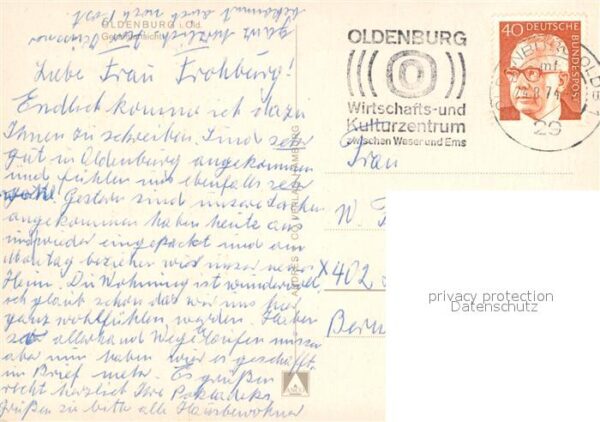 bekommen auch noch Post
ganz herzlich
OLDENBURG i. Old.
Liebe Frau Frohburg!
Endlich komme ich dazu
Ihnen zu schreiben. Sind sehr
gut in Oldenburg angekommen
und fühlen uns ebenfalls sehr
wohl. Gestern sind unsere Sachen
angekommen haben heute
eingepackt und am
Montag beziehen wir unser neues
Heim. Die Wohnung ist wundervoll
ich glaub schon das wir uns hier
ganz wohlfühlen werden. Haben
allerhand Wege laufen müssen
aber nun haben wir es geschafft.
im Brief mehr. Es grüßen
recht herzlich Ihre
Grüßen sie bitte alle Hausbewohner
OLDENBURG
Wirtschafts-und
Kulturzentrum
zwischen Weser und Ems
29
40 DEUTSCHE
BUNDESPOST
Frau
W.
X402
Bern
privacy protection
Datenschutz